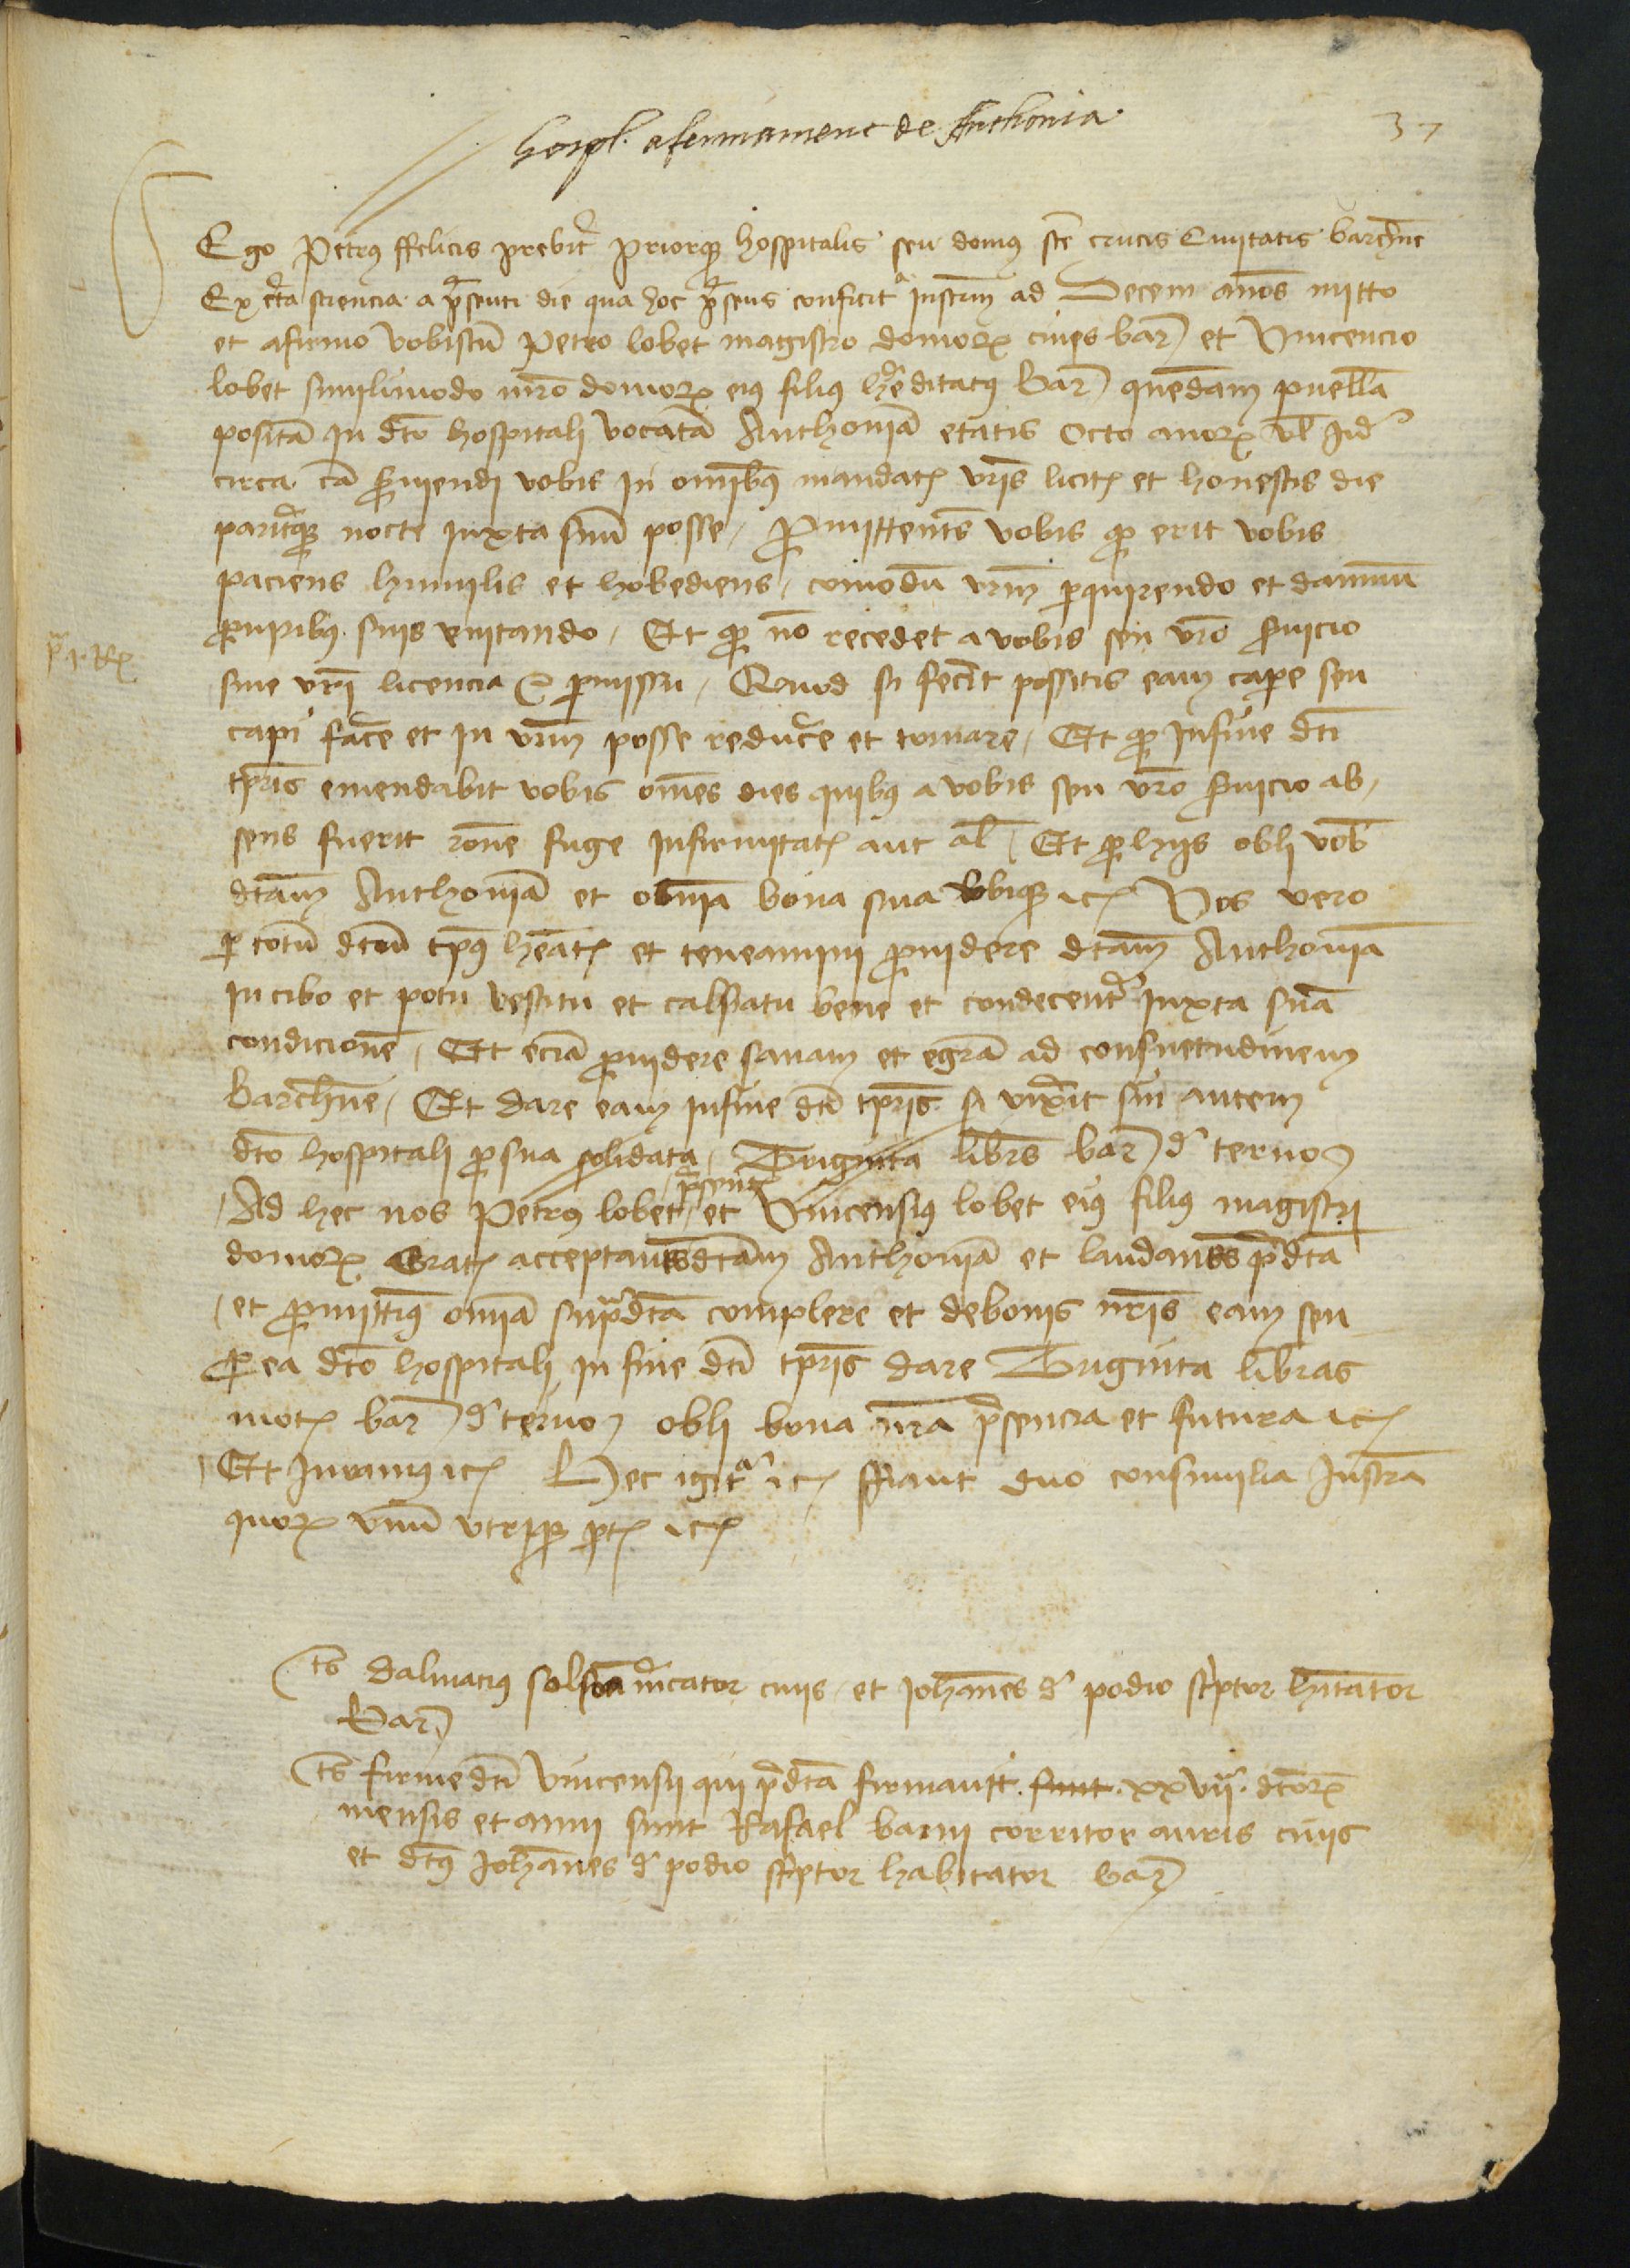 hospl. afermament de Anthonia
37
Ego Petrus ffelicis prebiter priorque hospitalis seu domus ste crucis Civitatis barchne
Ex certa sciencia a presenti die qua hoc presens conficitur instrum ad Decem annos mitto
et afirmo vobiscum Petro lobet magistro domorum cives bar et Vincencio
lobet similimodo mro domorum eius filius hereditatus bar quendam puellam
positam in dto hospitali vocatam Anthoniam etatis Octo annorum vel inde
circa cam serviendi vobis in omnibus mandatis vris licitis et honestis die
pariterque nocte iuxta suum posse, Promittens vobis quod erit vobis
paciens humilis et hobediens, comodum vrm perquirendo et dampnum
pro viribus suis evitando, Et quod non recedet a vobis seu vro servicio
sine vri licencia et permissu, Quod si fecerit possitis eam capere seu
capi facere et in vrm posse reducere et tornare, Et quod in fine dti
tpris emendabit vobis omnes dies quibus a vobis seu vro servicio ab,
sens fuerit rone fuge infirmitatis aut al, Et pro hiis obli vob
dtam Anthoniam et omnia bona sua ubique etc Vos vero
per totum dtum tpus heatis et teneamini providere dtam Anthoniam
in cibo et potu vestitu et calsiatu bene et condecenter iuxta suam
condicionem, Et eciam providere sanam et egram ad consuetudinem
barchne, Et dare eam in fine dti tpris si vixerit sin autem
dto hospitali pro sua solidata, Triginta libras bar de terno
Ad hec nos Petrus lobet presens et Vincensius lobet eius filius magistri
domorum Gratis acceptantes dtam Anthoniam et laudantes predta
et promittimus omnia supradta complere et de bonis nris eam seu
pro ea dto hospitali in fine dti tpris dare Triginta libras
mot bar de terno obli bona nra presencia et futura etc
Et iuramus etc Hec igitur etc ffiant duo consimilia Instra
quorum unum utrique pti etc
Ts dalmatius solsona mercator civis, et Johannes de podio scriptor hitator
bar
Ts firme dti Vincensii qui predta firmavit sunt xxvii dtorum
mensis et anni sunt Rafael barni corritor auris civis
et dtus Johannes de podio scriptor habitator bar